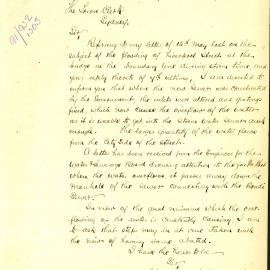 91/932
1503
The Town Clerk
Sydney
Sir
Referring to my letter of 12th May last on the
subject of the flooding of Liverpool Street at the
bridge on the boundary line during storm time, and
your reply thereto of 4th ultimo, I am directed to
inform you that when the new sewer was constructed
by the Government, the inlet was altered and gratings
fixed, which now cause the overflow of the water
as it is unable to get into the Storm water sewer quick
enough. The larger quantity of the water flows
from the City side of the Street.
A letter has been received from the Engineer for the
Water & Sewerage Board drawing attention to the fact that
when the water overflows, it passes away down the
manhole of the Sewer connecting with the Bondi
Sewer.
In view of the great nuisance which the over-
flowing of the water is constantly causing, I am
to ask that steps may be at once taken with
the view of having same abated.
I have the honor to be
Sir